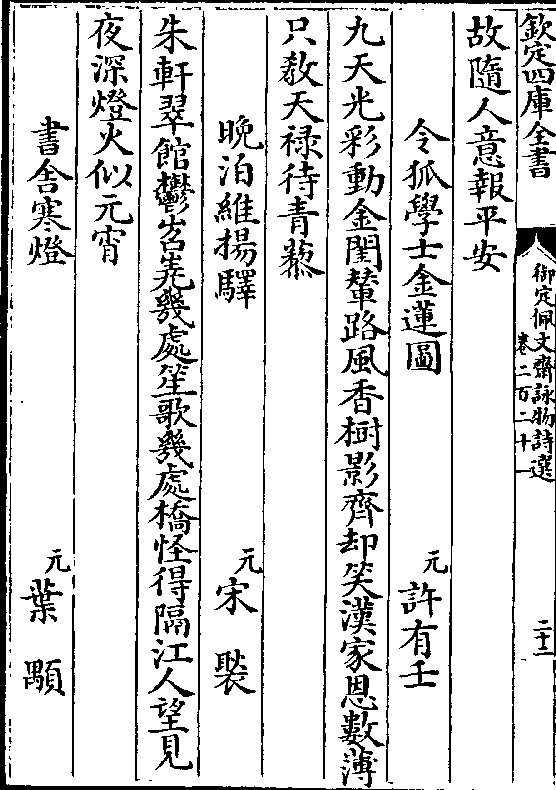 欽定四庫全書
御定佩文齋詠物詩選
卷二百二十一
二十二
故隨人意報平安
令狐學士金蓮圖 元 許有壬
九天光彩動金閨輦路風香樹影齊却笑漢家恩數薄
只敎天禄待青藜
晚泊維揚驛 元 宋褧
朱軒翠館鬱岧嶤幾處笙歌幾處橋怪得隔江人望見
夜深燈火似元宵
書舍寒燈 元 葉顒